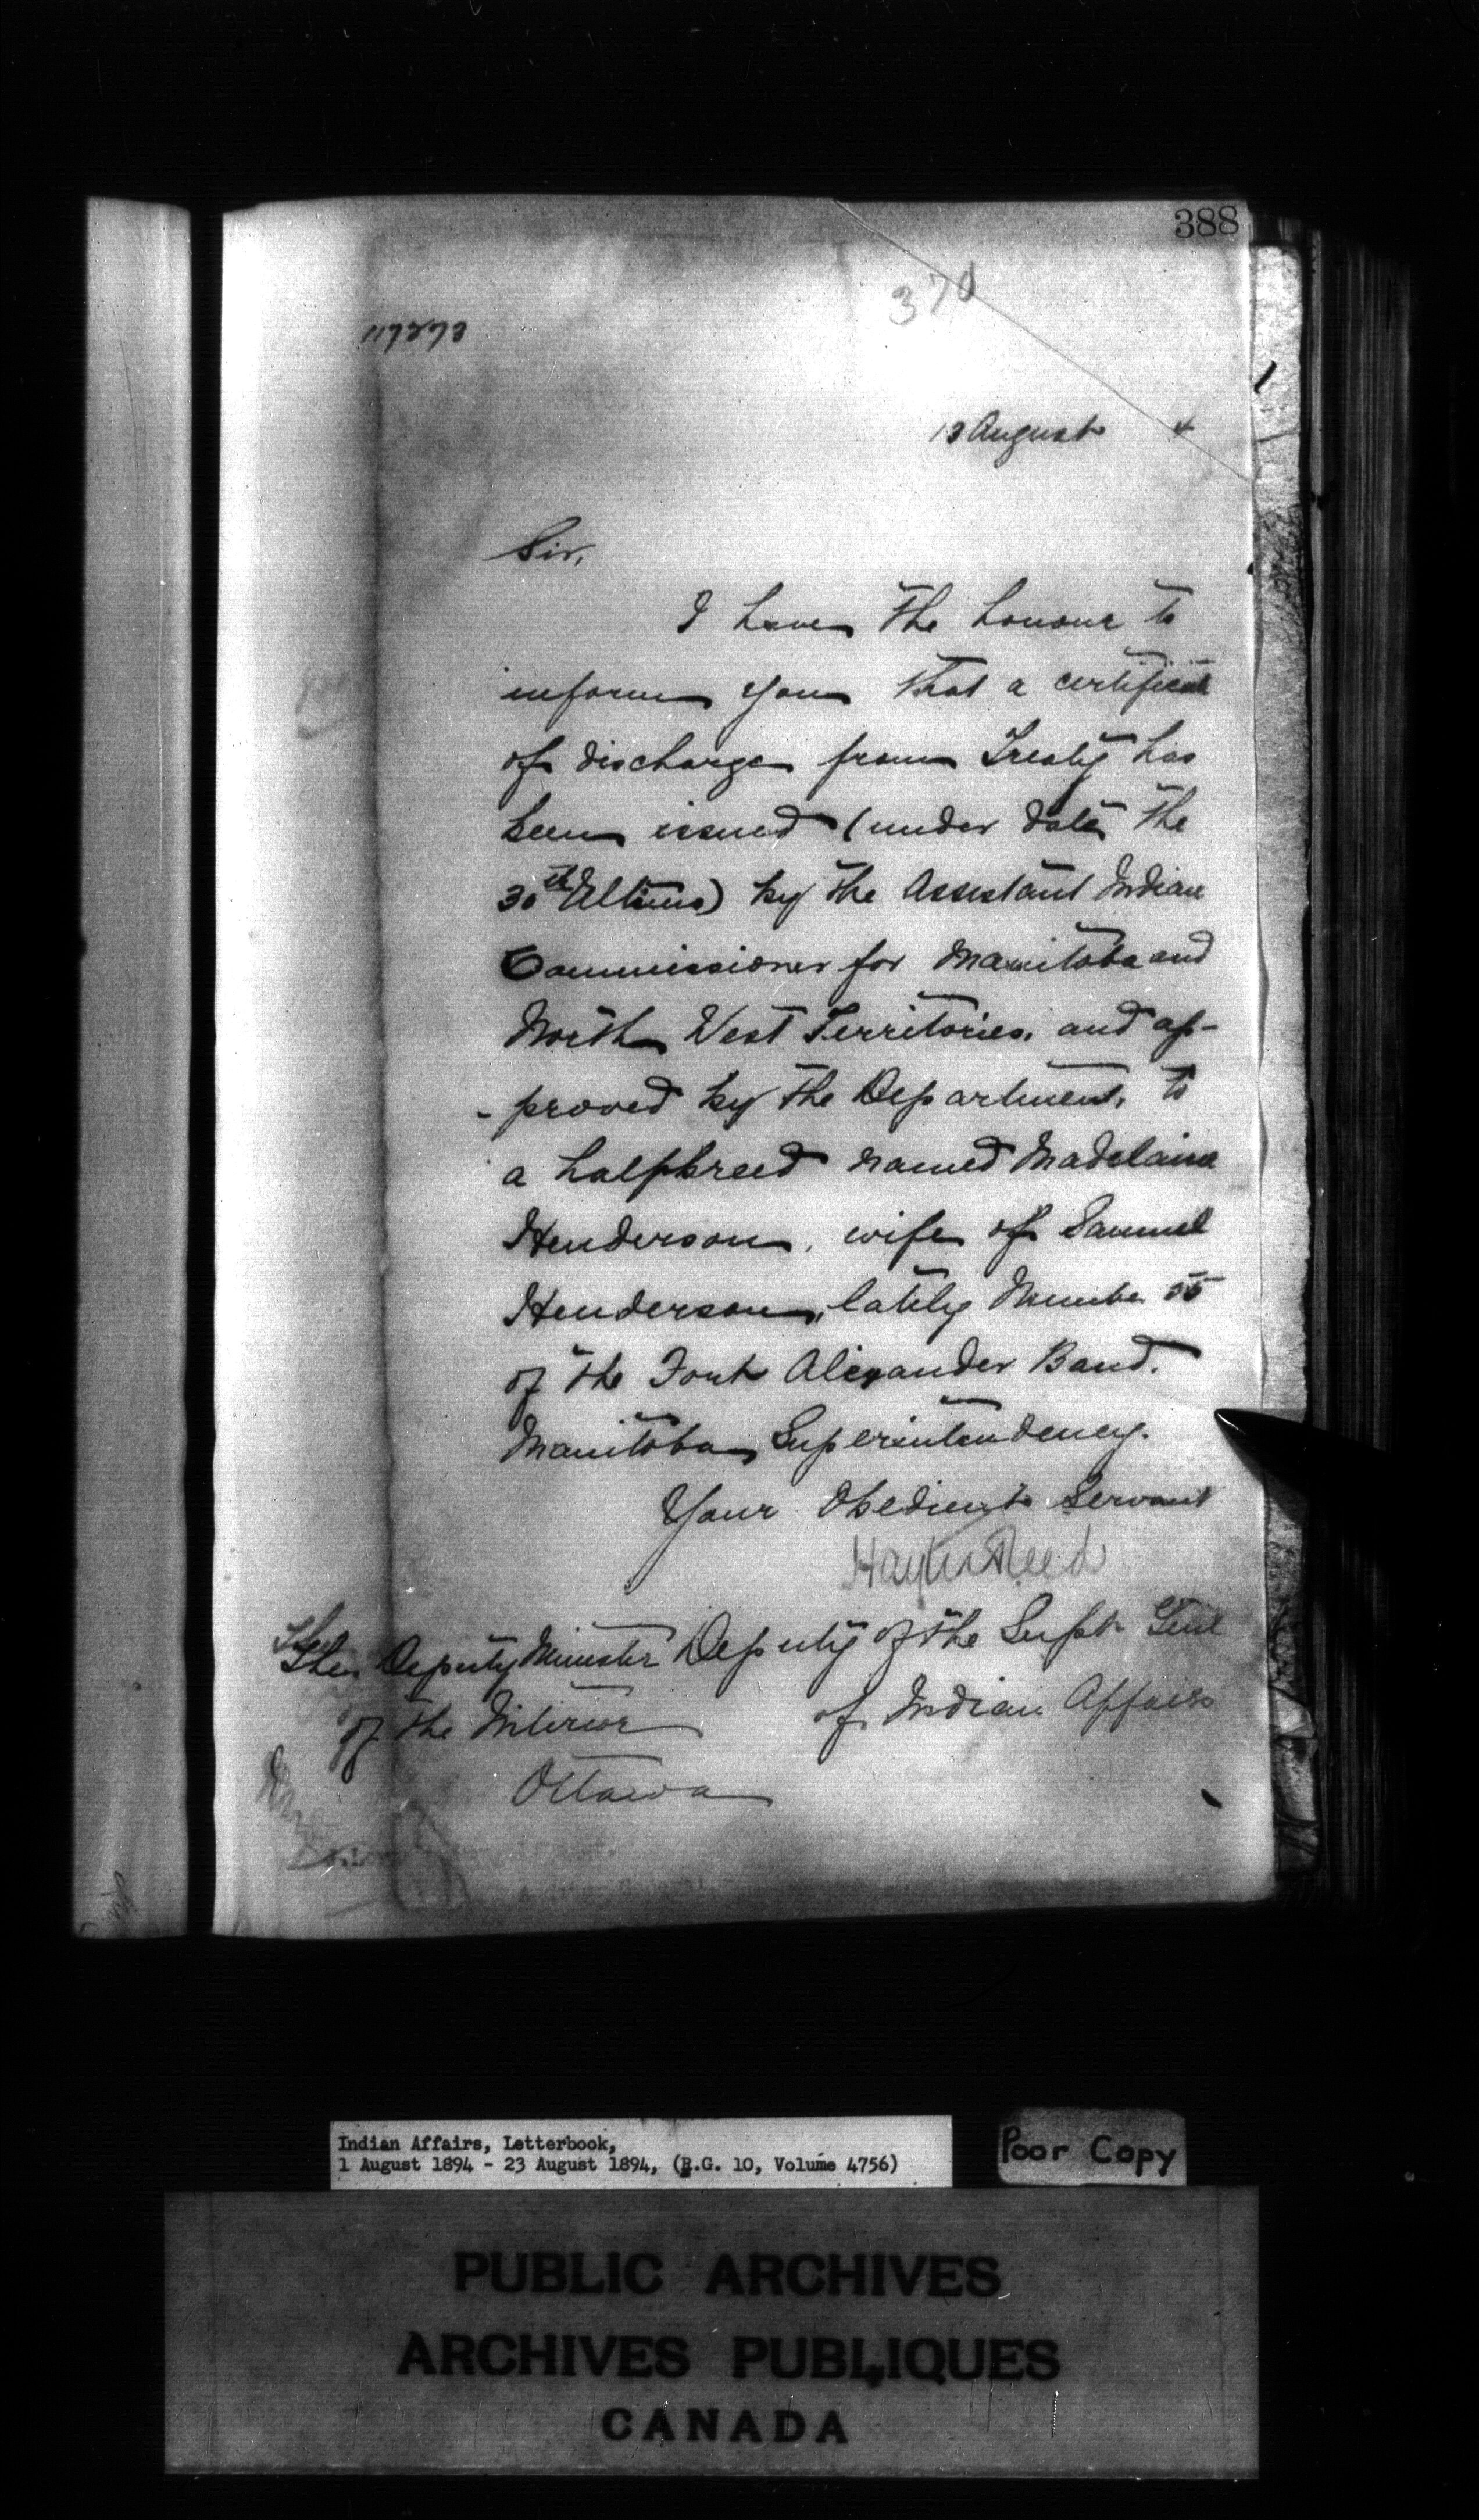 388
370
117273
13 August 4
Sir,
I have the honour to
inform you that a certificate
of discharge from Treaty has
been issued (under date the
30th Ultimo) by the Assistant Indian
Commissioner for Manitoba and
North West Territories, and ap-
-proved by the Department, to
a halfbreed named Madelaine
Henderson, wife of Samuel
Henderson, lately Number 55
of the Fort Alexander Band.
Manitoba Superintendency.
Your Obedient Servant
Hayter Reed
The Deputy Minister Deputy of the Supt. Genl
of the Interior of Indian Affairs
Ottawa
Indian Affairs, Letterbook,
1 August 1894 - 23 August 1894, (R.G. 10, Volume 4756)
Poor Copy
PUBLIC ARCHIVES
ARCHIVES PUBLIQUES
CANADA